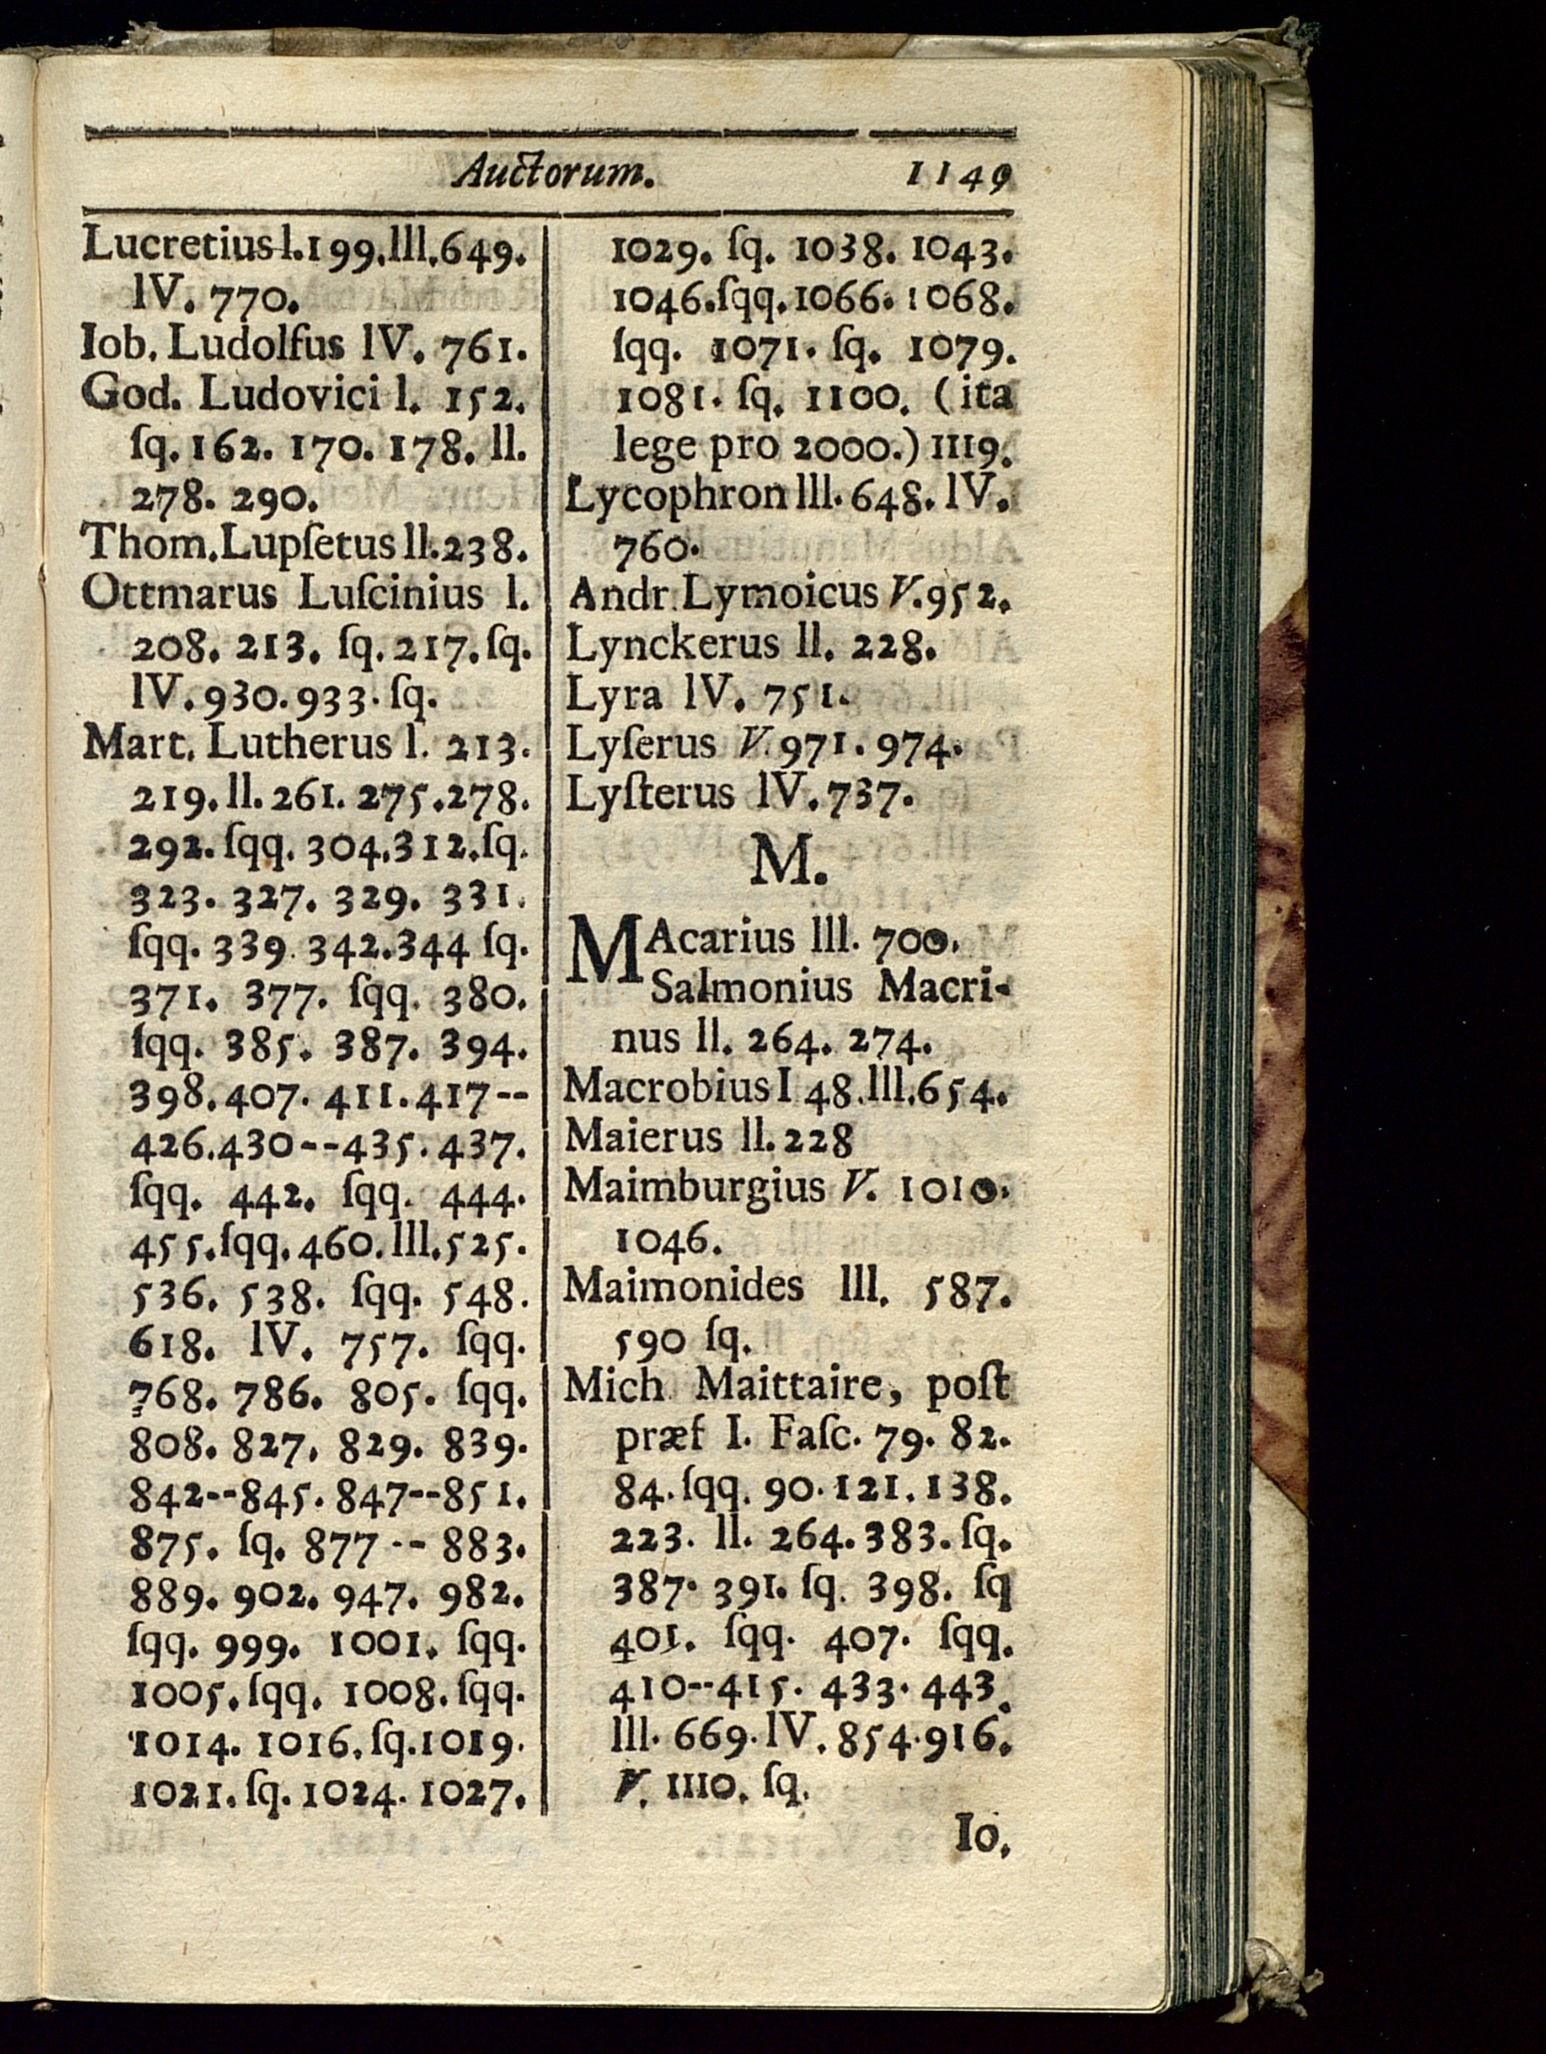 Auctorum. 1149
Lucretius l. 199. lll. 649.
lV. 770.
Iob. Ludolfus lV. 761.
God. Ludovici l. 152.
ſq. 162. 170. 178. ll.
278. 290.
Thom. Lupſetus ll. 238.
Ottmarus Luſcinius l.
208. 213. ſq. 217. ſq.
lV. 930. 933. ſq.
Mart. Lutherus l. 213.
219. ll. 261. 275. 278.
292. ſqq. 304. 312. ſq.
323. 327. 329. 331.
ſqq. 339. 342. 344 ſq.
371. 377. ſqq. 380.
ſqq. 385. 387. 394.
398. 407. 411. 417--
426. 430--435. 437.
ſqq. 442. ſqq. 444.
455. ſqq. 460. lll. 525.
536. 538. ſqq. 548.
618. lV. 757. ſqq.
768. 786. 805. ſqq.
808. 827. 829. 839.
842--845. 847--851.
875. ſq. 877 -- 883.
889. 902. 947. 982.
ſqq. 999. 1001. ſqq.
1005. ſqq. 1008. ſqq.
1014. 1016. ſq. 1019.
1021. ſq. 1024. 1027.
1029. ſq. 1038. 1043.
1046. ſqq. 1066. 1068.
ſqq. 1071. ſq. 1079.
1081. ſq. 1100. (ita
lege pro 2000.) 1119.
Lycophron lll. 648. lV.
760.
Andr. Lymoicus V. 952.
Lynckerus ll. 228.
Lyra lV. 751.
Lyſerus V. 971. 974.
Lyſterus lV. 737.
M.
MAcarius lll. 700.
Salmonius Macri-
nus ll. 264. 274.
Macrobius I 48. lll. 654.
Maierus ll. 228
Maimburgius V. 1010.
1046.
Maimonides lll. 587.
590 ſq.
Mich Maittaire, poſt
præf I. Faſc. 79. 82.
84. ſqq. 90. 121. 138.
223. ll. 264. 383. ſq.
387. 391. ſq. 398. ſq
401. ſqq. 407. ſqq.
410--415. 433. 443.
lll. 669. lV. 854. 916.
V. 1110. ſq.
Io.